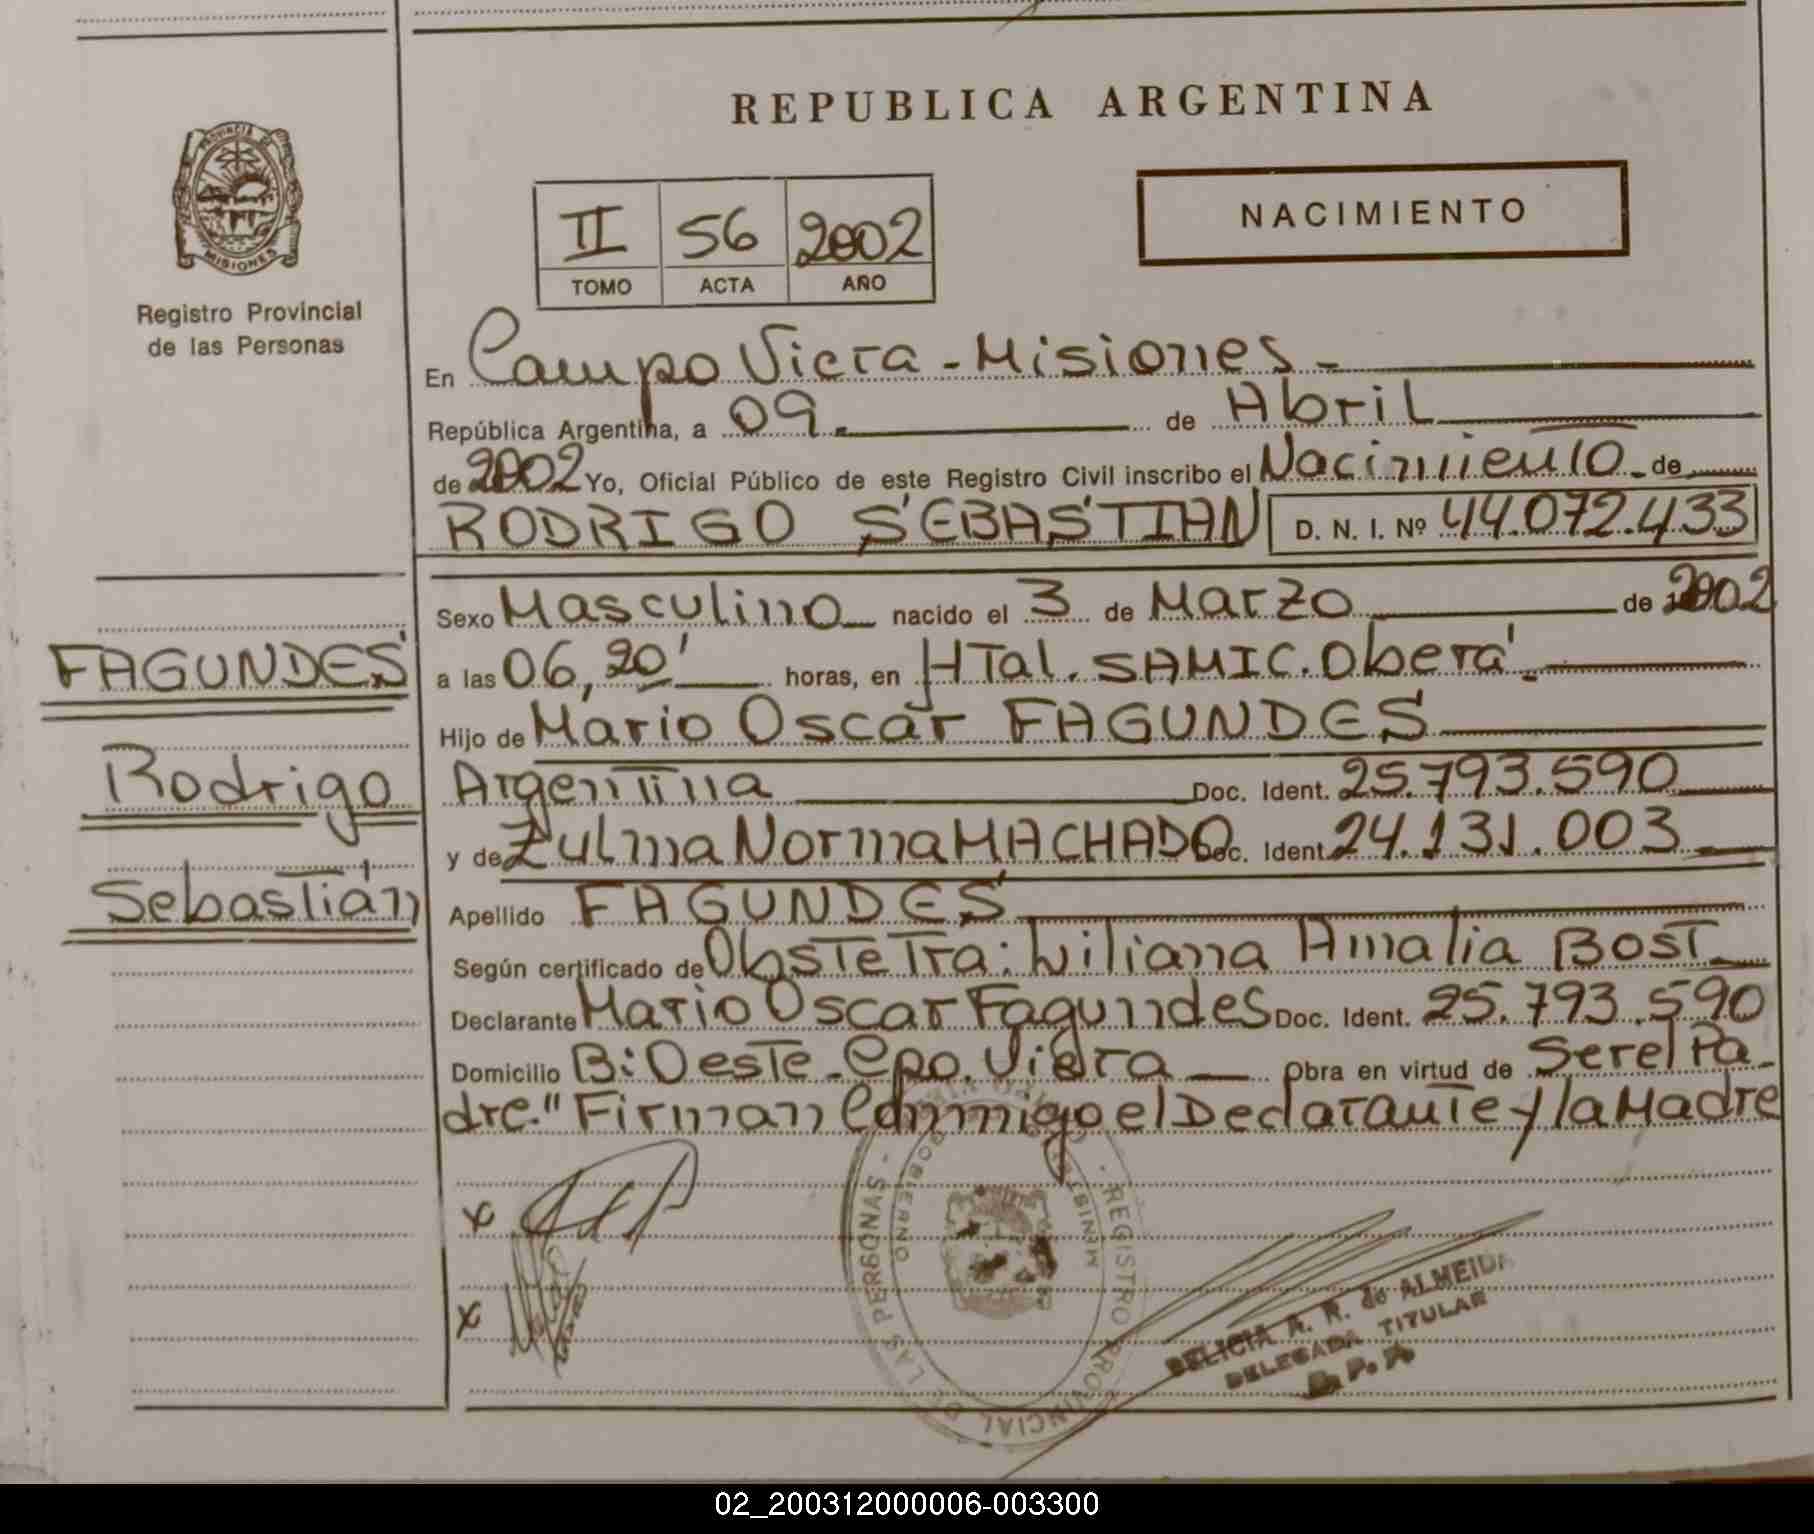 REPUBLICA ARGENTINA
PROVINCIA DE
MISIONES
Registro Provincial
de las Personas
II 56 2002
TOMO ACTA AÑO
NACIMIENTO
En Campo Viera - Misiones -
República Argentina, a 09. de Abril
de 2002 Yo, Oficial Público de este Registro Civil inscribo el Nacimiento de
RODRIGO SEBASTIAN D. N. I. Nº 44.072.433
Sexo Masculino nacido el 3 de Marzo de 2002
FAGUNDES
a las 06,20' horas, en HTal. SAMIC. Oberá.
Hijo de Mario Oscar FAGUNDES
Rodrigo
Argentina Doc. Ident. 25.793.590
y de Zulma Norma MACHADO Doc. Ident. 24.131.003
Sebastián
Apellido FAGUNDES
Según certificado de Obstetra: Liliana Amalia BOST
Declarante Mario Oscar Fagundes Doc. Ident. 25.793.590
Domicilio B: Oeste - Cpo. Viera Obra en virtud de Ser el Pa-
dre." Firman Conmigo el Declarante y la Madre
x
x
REGISTRO PROVINCIAL DE LAS PERSONAS
MINIST GOBIERNO
DELICIA A. R. de ALMEIDA
DELEGADA TITULAR
R. P. P.
02_200312000006-003300